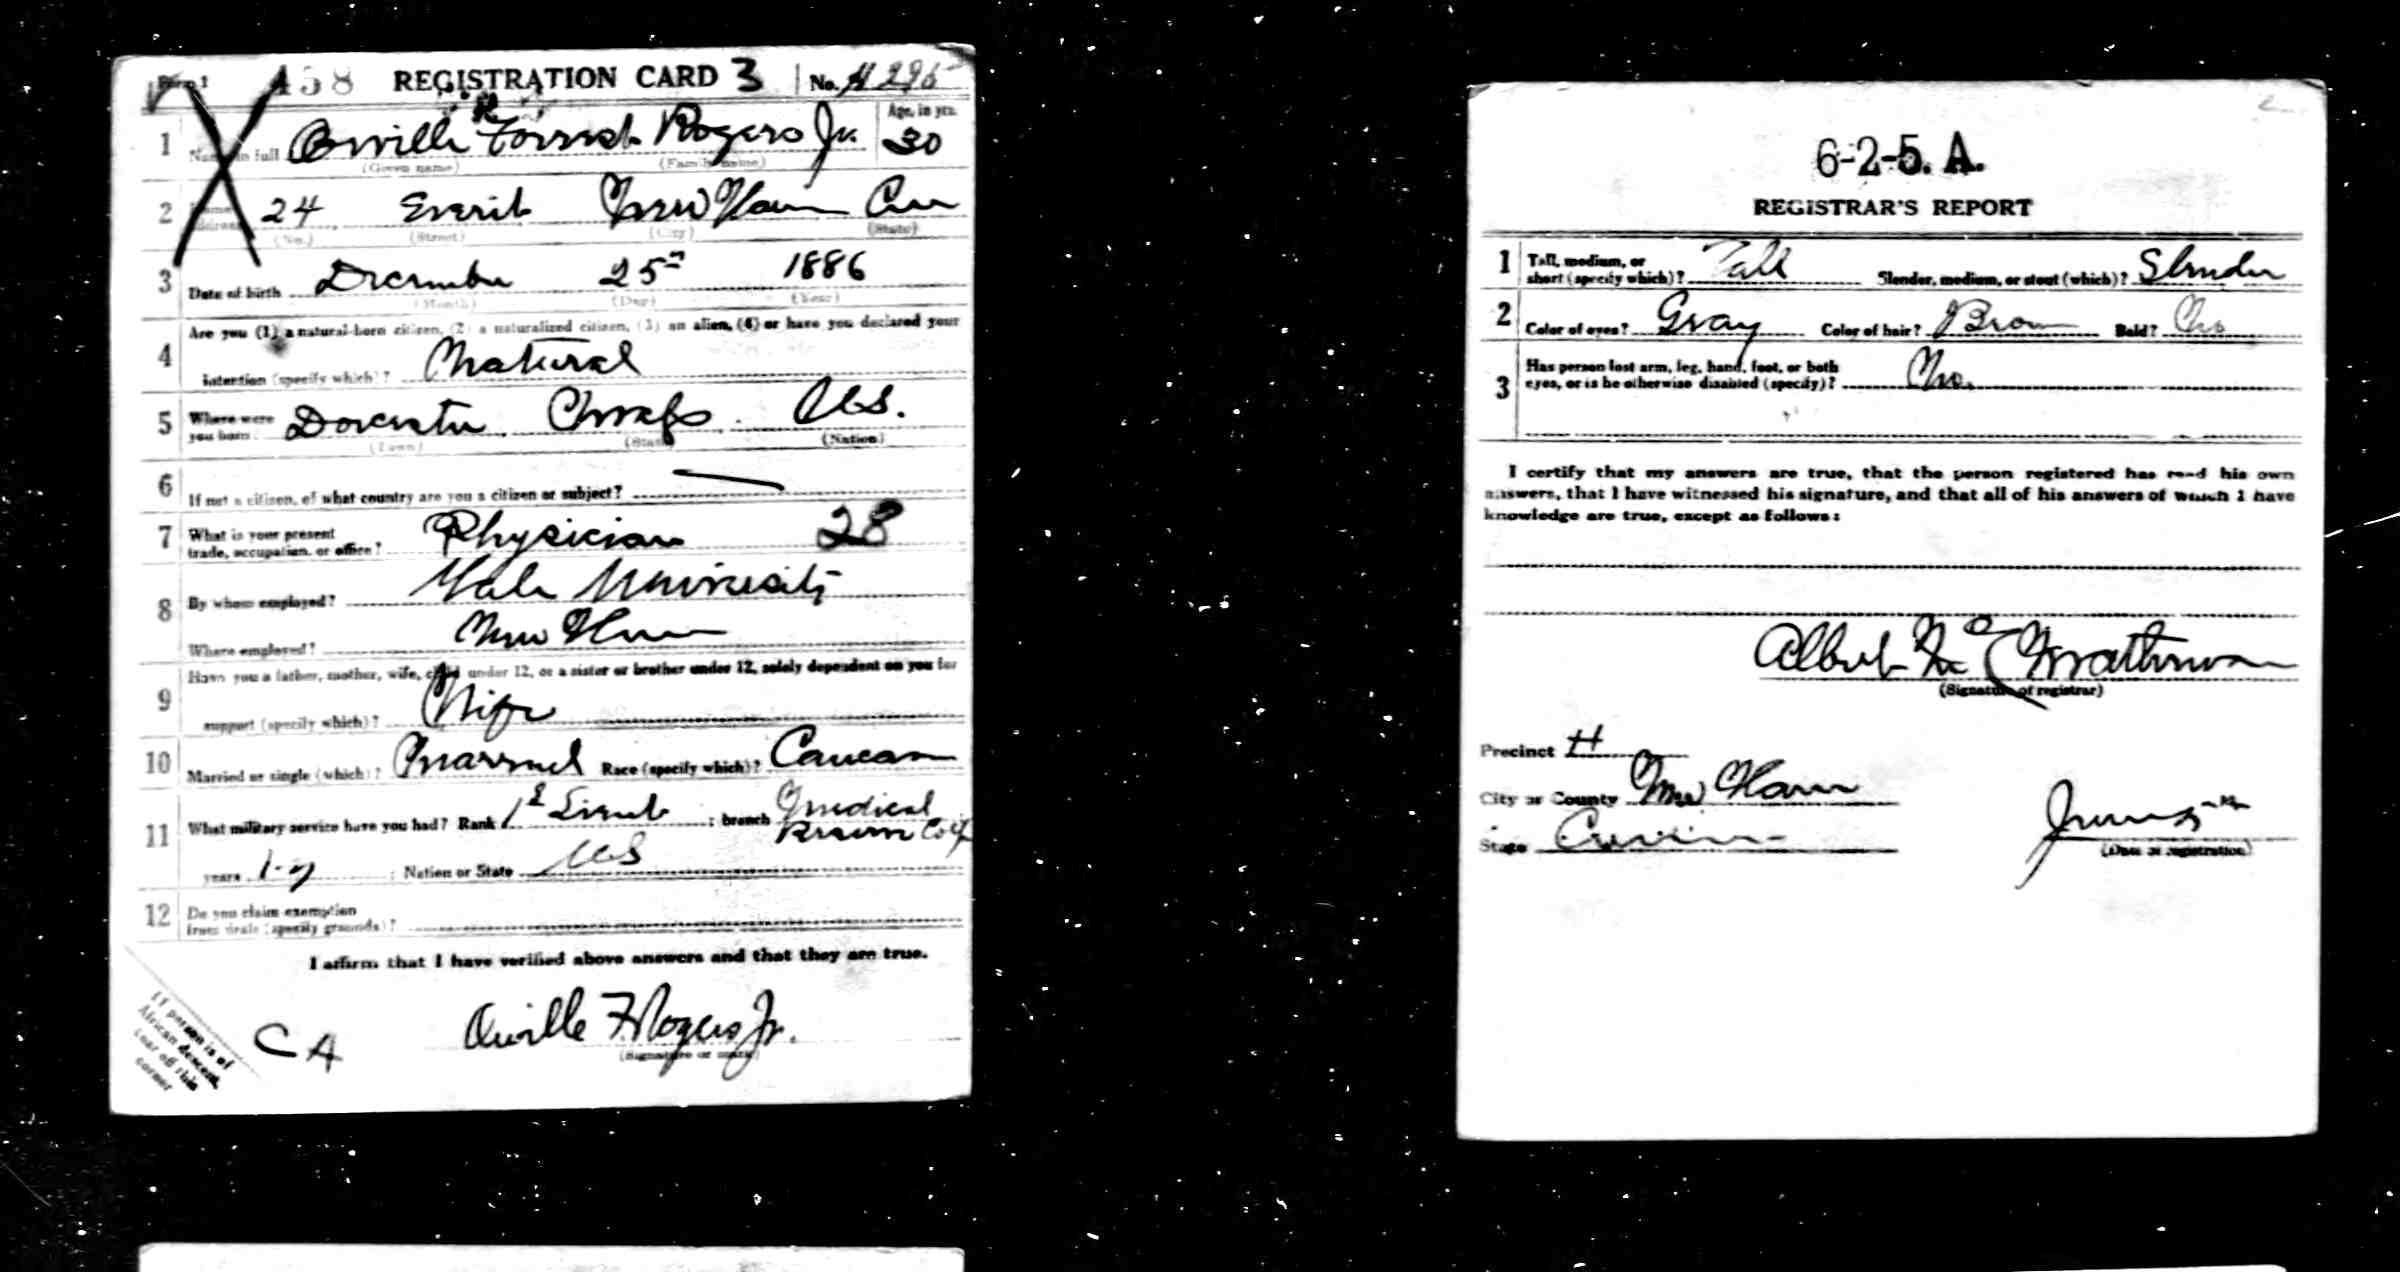 458 REGISTRATION CARD 3 No. H 296
1 Name in full Orville Forrest Rogers Jr. Age, in yrs. 30
(Given name) (Family name)
2 Home address 24 Everit New Haven Conn
(No.) (Street) (City) (State)
3 Date of birth December 25 1886
(Month) (Day) (Year)
Are you (1) a natural-born citizen, (2) a naturalized citizen, (3) an alien, (4) or have you declared your
4 intention (specify which)? Natural
5 Where were you born? Dorchester Mass U.S.
(Town) (State) (Nation)
6 If not a citizen, of what country are you a citizen or subject?
7 What is your present
trade, occupation, or office? Physician 28
8 By whom employed? Yale University
Where employed? New Haven
9 Have you a father, mother, wife, child under 12, or a sister or brother under 12, solely dependent on you for
support (specify which)? Wife
10 Married or single (which)? Married Race (specify which)? Caucasn
11 What military service have you had? Rank 1st Lieut ; branch Medical
Reserve
years 1-y ; Nation or State US
12 Do you claim exemption
from draft (specify grounds)?
I affirm that I have verified above answers and that they are true.
Orville F. Rogers Jr.
(Signature or mark)
If person is of
African descent,
tear off this
corner
C A
6-2-5. A.
REGISTRAR'S REPORT
1 Tall, medium, or
short (specify which)? Tall Slender, medium, or stout (which)? Slender
2 Color of eyes? Gray Color of hair? Brown Bald? No
3 Has person lost arm, leg, hand, foot, or both
eyes, or is he otherwise disabled (specify)? No.
I certify that my answers are true, that the person registered has read his own
answers, that I have witnessed his signature, and that all of his answers of which I have
knowledge are true, except as follows:
Albert Mc
(Signature of registrar)
Precinct H
City or County New Haven
State Conn
June 5
(Date of registration)